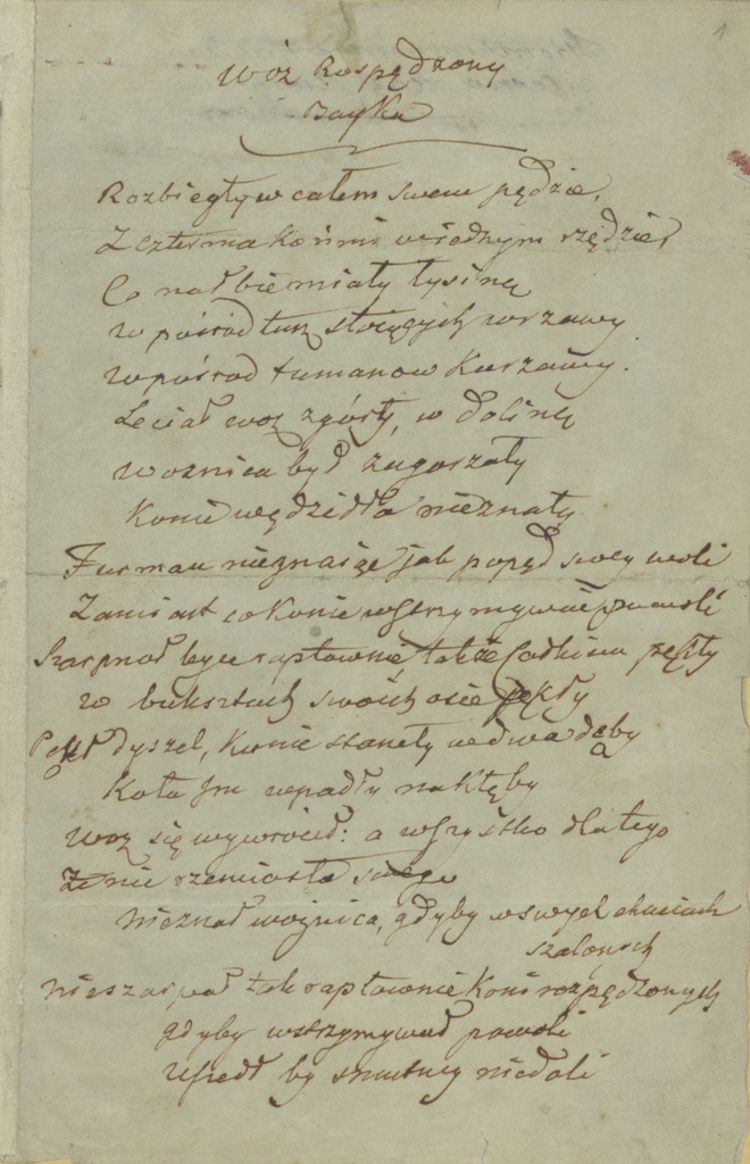 1
Wóz Rospędzony
Bayka
Rozbiegły w całem swem pędzie,
Z czterma końmi w iednym rzędzie,
Co na łbie miały łysinę
w pośród tłuszczy wrzawy
w pośrod tumanow kurzawy.
Leciał woz z góry, w dolinę
Woznica był zagorzały
Konie wędzidła nieznały
Furman nieznaiąc jak popęd swey woli
Zamiast co konie wstrzymywać powoli
Szarpnoł byce raptownie, tak że pękły
w buksztach swoich osie pękły
Pękł dyszel, konie stanęły we dwa dęby
Koła im wpadły na kłęby
Woz się wywrócił: a wszystko dla tego
Że nie rzemiosła swego
Nieznał woźnica, gdyby w swych chuciach
szalonych
Nieszarpał tak raptownie koni rozpędzonych
gdyby wstrzymywał powoli
Uszedł by smutney niedoli